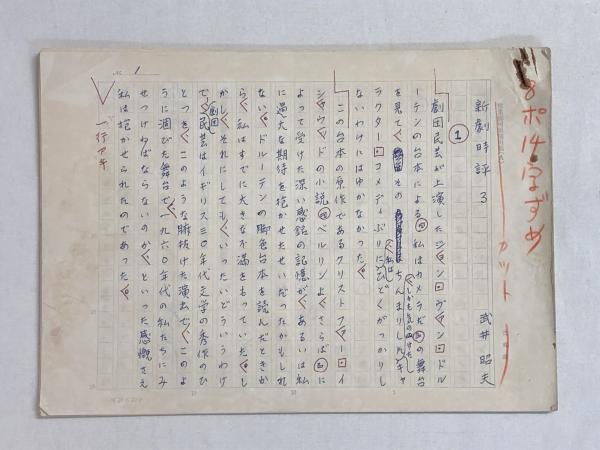 8ポ14字ずめ
カット
新劇時評 3
武井昭夫
1
劇団民芸が上演したジョン・ヴァン・ドル
ーテンの台本による『私はカメラだ』の舞台
を見て、その、しかも気のぬけたちんまりしたキャ
ラクター・コメディぶりに、私はひどくがっかりし
ないわけにはゆかなかった。
この台本の原作であるクリストファー・イ
シャウッドの小説『ベルリンよ、さらば』に
よって受けた深い感銘の記憶が、あるいは私
に過大な期待を抱かせたせいだったかもしれ
ない。ドルーテンの脚色台本を読んだときか
ら、私はすでに大きな不満をもっていた。し
かし、それにしても、いったいどういうわけ
で、劇団民芸はイギリス三〇年代文学の秀作のひ
とつを、このような腑抜けた演出で、このよ
うに凋びた舞台で、一九六〇年代の私たちにみ
せつけねばならないのか、といった感慨さえ
私は抱かせられたのであった。
一行アキ
No. 1